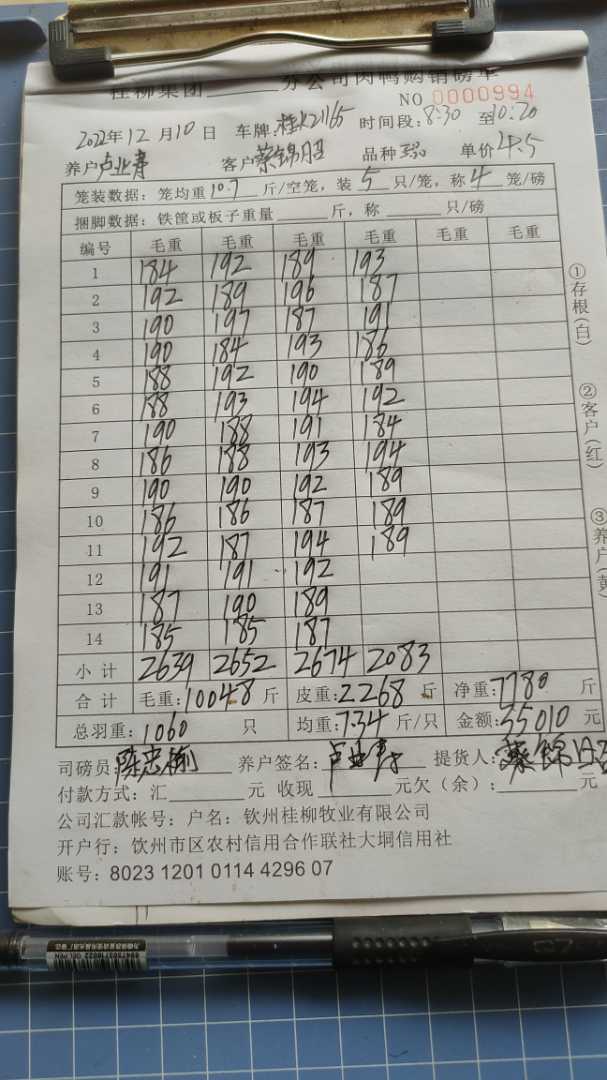 桂柳集团______分公司肉鸭购销磅单
NO 0000994
2022年12月10日 车牌:桂K21165 时间段:8:30 至10:20
养户卢业青 客户蔡锦 品种 单价4.5
笼装数据：笼均重10.7斤/空笼，装5只/笼，称4笼/磅
捆脚数据：铁筐或板子重量______斤，称______只/磅
编号 毛重 毛重 毛重 毛重 毛重 毛重
1 184 192 189 193
2 192 189 196 187
3 190 197 187 191
4 190 184 193 186
5 188 192 190 189
6 188 193 194 192
7 190 188 191 184
8 186 188 193 194
9 190 190 192 189
10 186 186 187 189
11 192 187 194 189
12 191 191 192
13 187 190 189
14 185 185 187
小计 2639 2652 2674 2083
合计 毛重:10048斤 皮重:2268斤 净重:7780斤
总羽重:1060只 均重:7.34斤/只 金额:35010元
司磅员:陈忠 养户签名:卢业青 提货人:蔡锦
付款方式：汇______元 收现______元欠（余）:______元
公司汇款帐号：户名：钦州桂柳牧业有限公司
开户行：钦州市区农村信用合作联社大垌信用社
账号：8023 1201 0114 4296 07
①存根(白)
②客户(红)
③养户(黄)